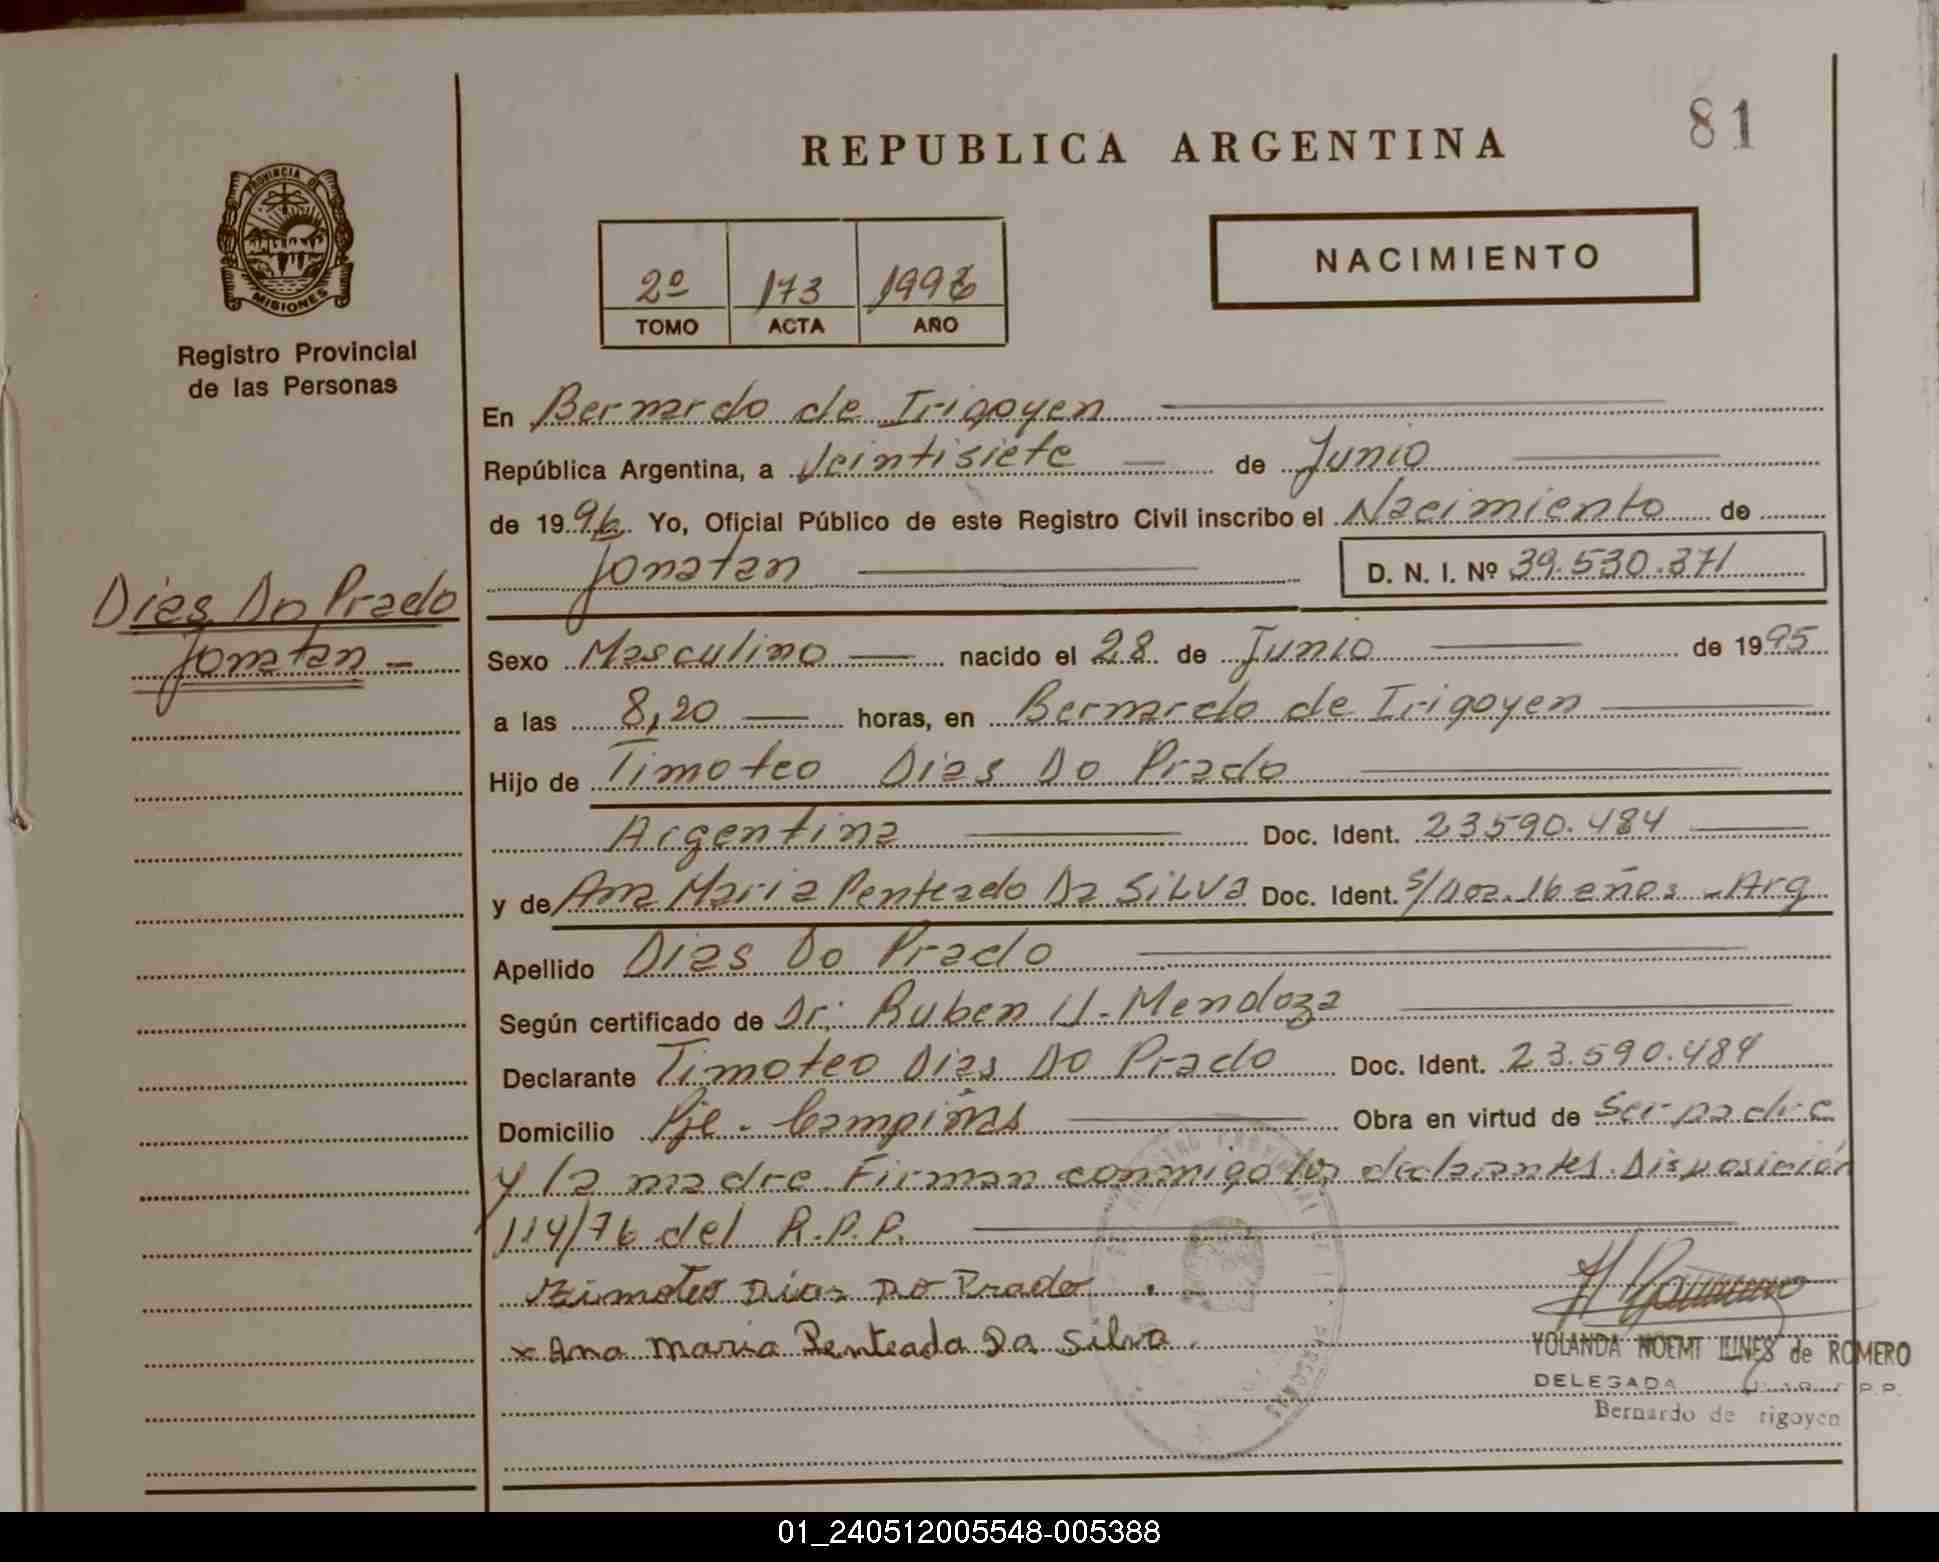 81
REPUBLICA ARGENTINA
PROVINCIA DE
MISIONES
Registro Provincial
de las Personas
NACIMIENTO
2º 173 1996
TOMO ACTA AÑO
En Bernardo de Irigoyen
República Argentina, a Veintisiete de Junio
de 1996 Yo, Oficial Público de este Registro Civil inscribo el Nacimiento de
Jonatan D. N. I. Nº 39.530.371
Dias Do Prado
Jonatan -
Sexo Masculino nacido el 28 de Junio de 1995
a las 8,20 horas, en Bernardo de Irigoyen
Hijo de Timoteo Dias Do Prado
Argentina Doc. Ident. 23590.484
y de Ana Maria Penteado Da Silva Doc. Ident. S/Doc. 16 años - Arg
Apellido Dias Do Prado
Según certificado de Dr. Ruben U. Mendoza
Declarante Timoteo Dias Do Prado Doc. Ident. 23.590.484
Domicilio Pje. Campiñas Obra en virtud de Ser padre
y la madre. Firman conmigo los declarantes. Disposición
114/76 del R.P.P.
Timoteo Dias Do Prado
x Ana Maria Penteada Da Silva
YOLANDA NOEMI de ROMERO
DELEGADA
Bernardo de rigoyen
01_240512005548-005388